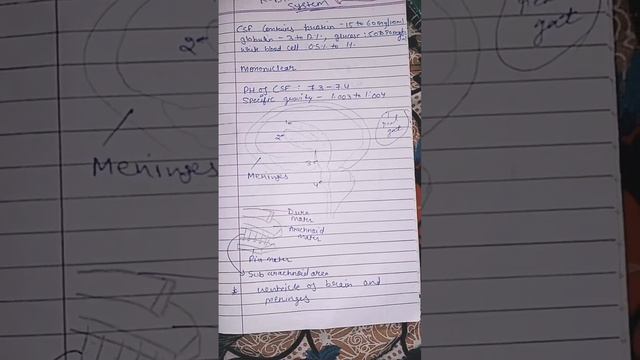 System
CSF contains protein - 15 to 60 mg/100ml
globulin - 3 to 12%, glucose: 50 to 80 mg%
white blood cell 0.5% to 1%.
Mononuclear
PH of CSF : 7.3 - 7.4
Specific gravity - 1.003 to 1.004
1st
2nd
3rd
4th
Meninges
Dura
mater
Arachnoid
mater
Pia mater
Sub arachnoid area
* ventricle of brain and
meninges